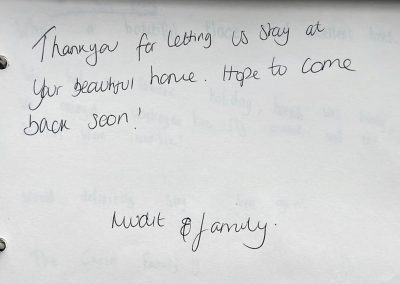 Thankyou for letting us stay at
your beautiful home. Hope to come
back soon!
Mudit & family.